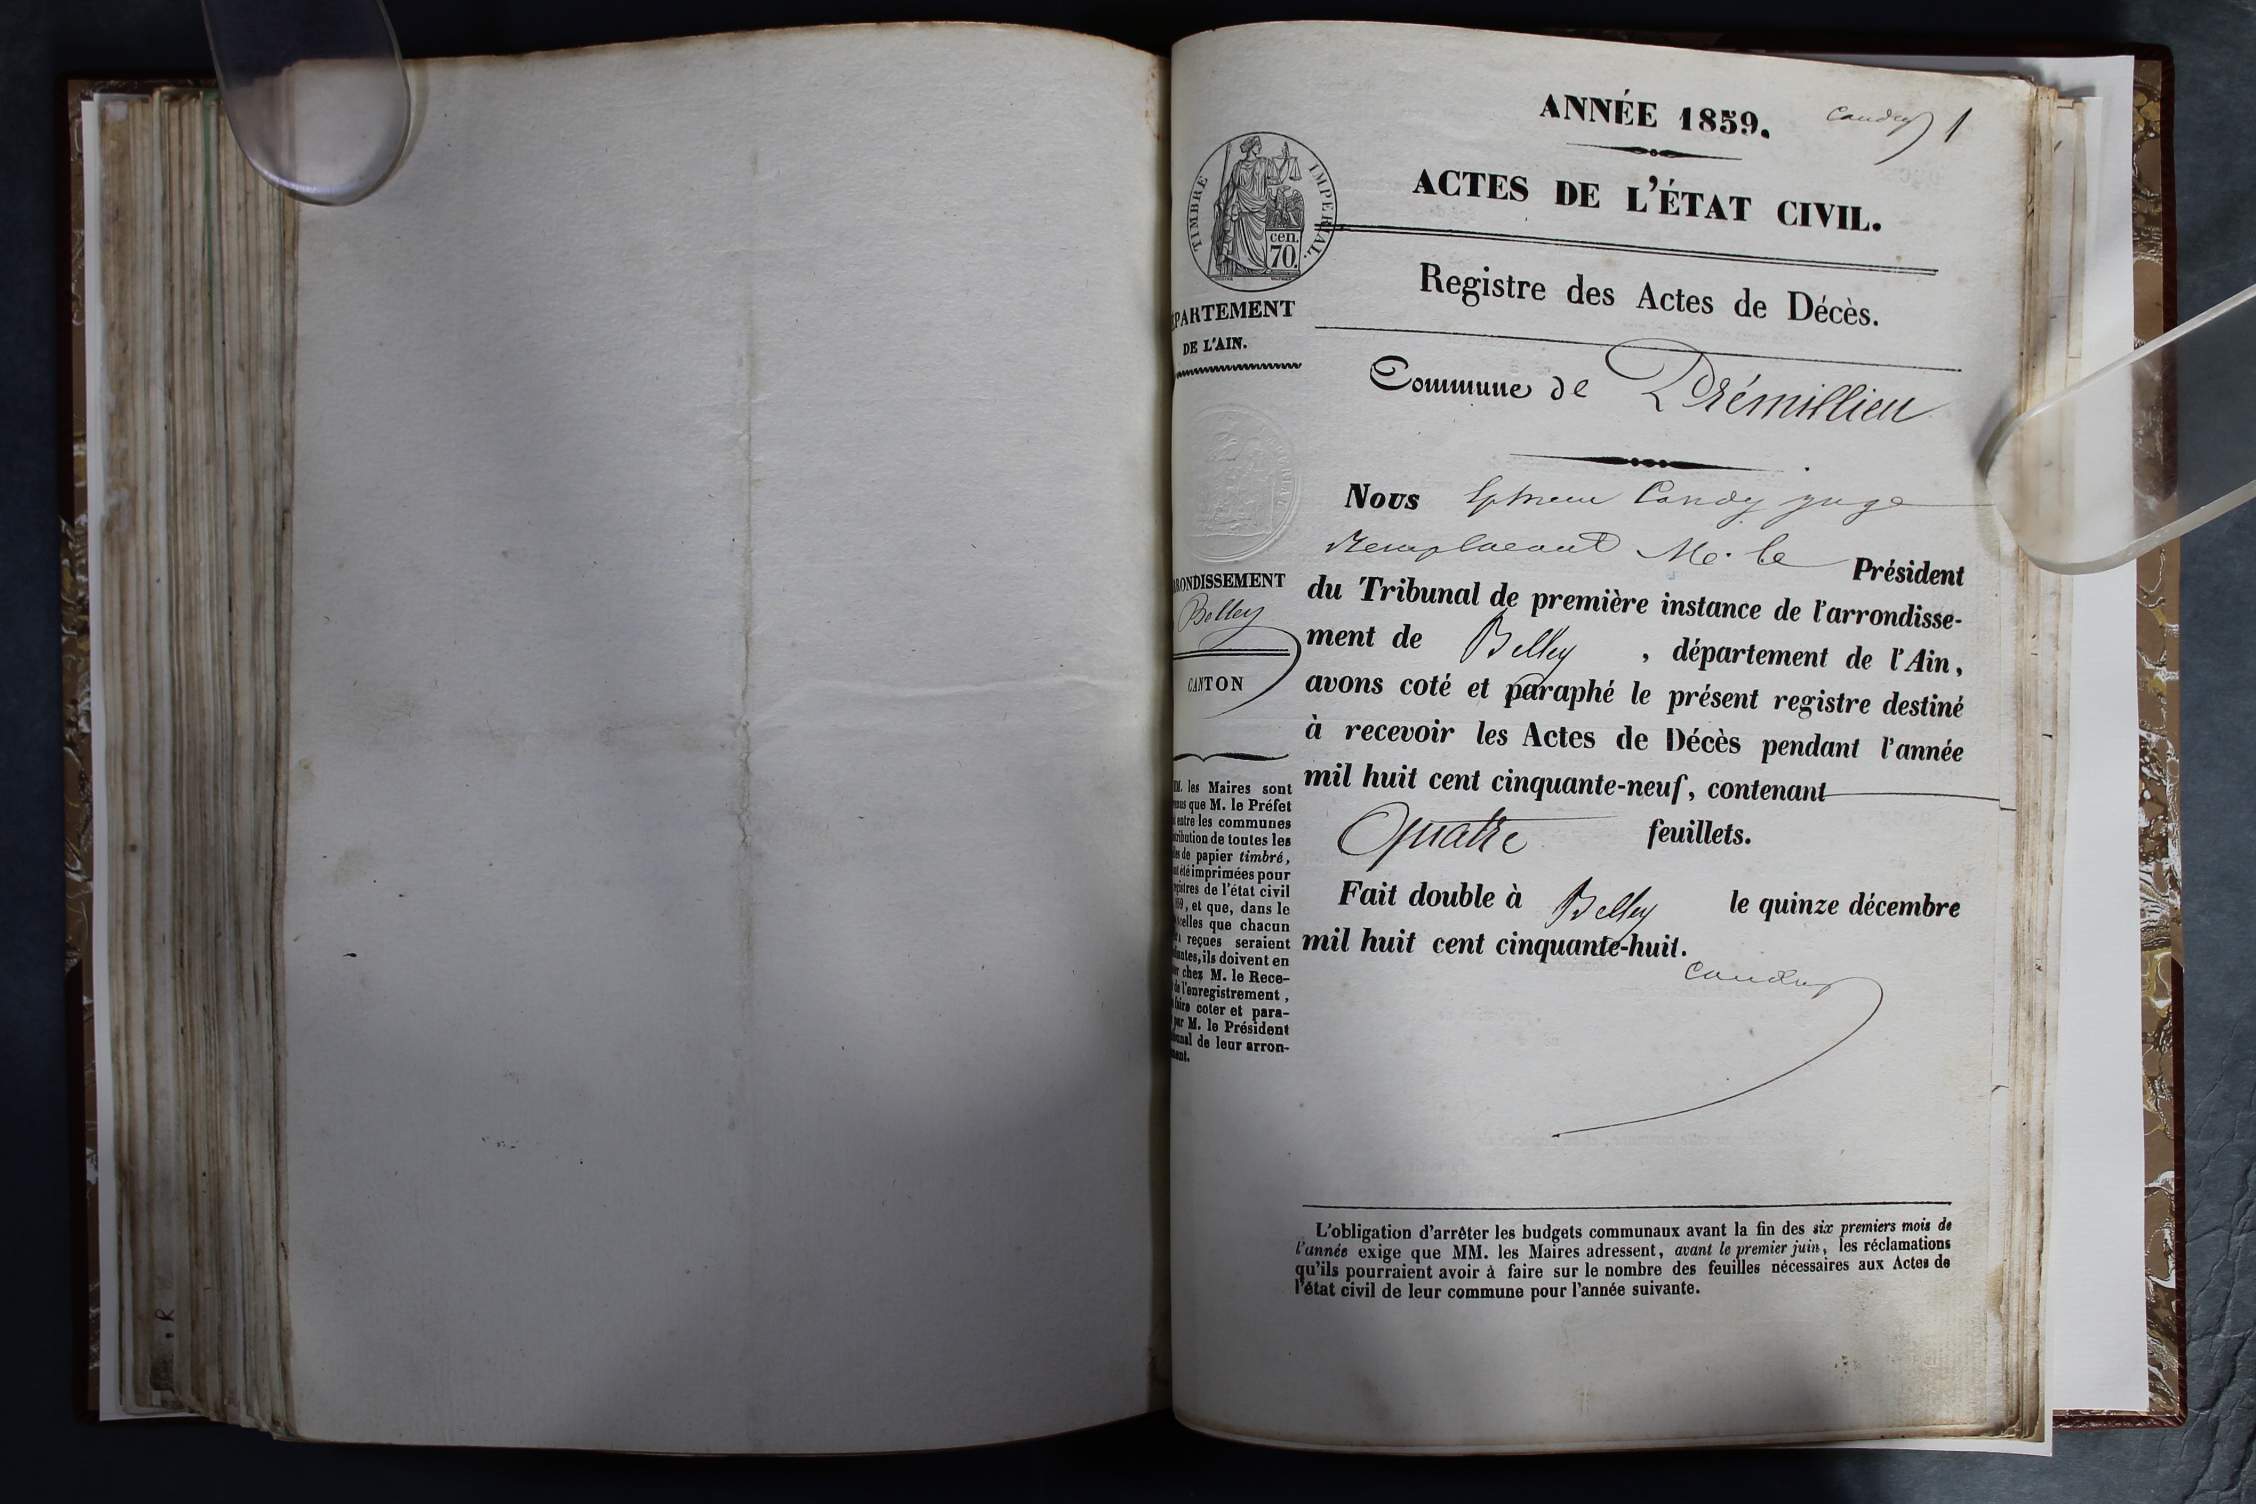 ANNÉE 1859.
1
ACTES DE L'ÉTAT CIVIL.
TIMBRE IMPERIAL.
cen.
70.
Registre des Actes de Décès.
DÉPARTEMENT
DE L'AIN.
Commune de Prémillieu
Nous Candy juge
Remplacant M. le Président
du Tribunal de première instance de l'arrondisse-
ment de Belley, département de l'Ain,
avons coté et paraphé le présent registre destiné
à recevoir les Actes de Décès pendant l'année
mil huit cent cinquante-neuf, contenant
Quatre feuillets.
Fait double à Belley le quinze décembre
mil huit cent cinquante-huit.
ARRONDISSEMENT
Belley
CANTON
MM. les Maires sont
que M. le Préfet
entre les communes
de toutes les
de papier timbré,
été imprimées pour
de l'état civil
, et que, dans le
celles que chacun
reçues seraient
, ils doivent en
chez M. le Rece-
de l'enregistrement,
faire coter et para-
par M. le Président
de leur arron-
L'obligation d'arrêter les budgets communaux avant la fin des six premiers mois de
l'année exige que MM. les Maires adressent, avant le premier juin, les réclamations
qu'ils pourraient avoir à faire sur le nombre des feuilles nécessaires aux Actes de
l'état civil de leur commune pour l'année suivante.